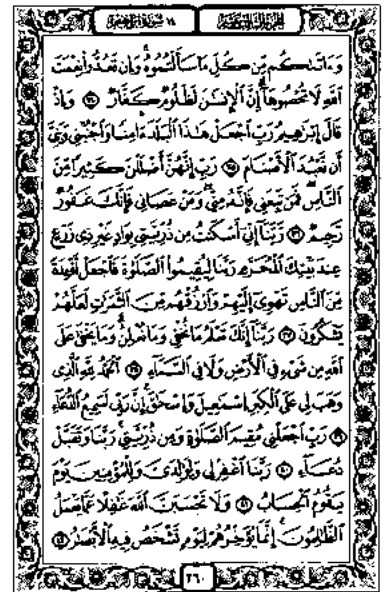 الجزء الثالث عشر ١٤ سورة إبراهيم
وَءَاتَىٰكُم مِّن كُلِّ مَا سَأَلْتُمُوهُ وَإِن تَعُدُّوا۟ نِعْمَتَ
ٱللَّهِ لَا تُحْصُوهَآ إِنَّ ٱلْإِنسَٰنَ لَظَلُومٌ كَفَّارٌ ۝٣٤ وَإِذْ
قَالَ إِبْرَٰهِيمُ رَبِّ ٱجْعَلْ هَٰذَا ٱلْبَلَدَ ءَامِنًا وَٱجْنُبْنِى وَبَنِىَّ
أَن نَّعْبُدَ ٱلْأَصْنَامَ ۝٣٥ رَبِّ إِنَّهُنَّ أَضْلَلْنَ كَثِيرًا مِّنَ
ٱلنَّاسِ فَمَن تَبِعَنِى فَإِنَّهُۥ مِنِّى وَمَنْ عَصَانِى فَإِنَّكَ غَفُورٌ
رَّحِيمٌ ۝٣٦ رَّبَّنَآ إِنِّىٓ أَسْكَنتُ مِن ذُرِّيَّتِى بِوَادٍ غَيْرِ ذِى زَرْعٍ
عِندَ بَيْتِكَ ٱلْمُحَرَّمِ رَبَّنَا لِيُقِيمُوا۟ ٱلصَّلَوٰةَ فَٱجْعَلْ أَفْـِٔدَةً
مِّنَ ٱلنَّاسِ تَهْوِىٓ إِلَيْهِمْ وَٱرْزُقْهُم مِّنَ ٱلثَّمَرَٰتِ لَعَلَّهُمْ
يَشْكُرُونَ ۝٣٧ رَبَّنَآ إِنَّكَ تَعْلَمُ مَا نُخْفِى وَمَا نُعْلِنُ وَمَا يَخْفَىٰ عَلَى
ٱللَّهِ مِن شَىْءٍ فِى ٱلْأَرْضِ وَلَا فِى ٱلسَّمَآءِ ۝٣٨ ٱلْحَمْدُ لِلَّهِ ٱلَّذِى
وَهَبَ لِى عَلَى ٱلْكِبَرِ إِسْمَٰعِيلَ وَإِسْحَٰقَ إِنَّ رَبِّى لَسَمِيعُ ٱلدُّعَآءِ
۝٣٩ رَبِّ ٱجْعَلْنِى مُقِيمَ ٱلصَّلَوٰةِ وَمِن ذُرِّيَّتِى رَبَّنَا وَتَقَبَّلْ
دُعَآءِ ۝٤٠ رَبَّنَا ٱغْفِرْ لِى وَلِوَٰلِدَىَّ وَلِلْمُؤْمِنِينَ يَوْمَ
يَقُومُ ٱلْحِسَابُ ۝٤١ وَلَا تَحْسَبَنَّ ٱللَّهَ غَٰفِلًا عَمَّا يَعْمَلُ
ٱلظَّٰلِمُونَ إِنَّمَا يُؤَخِّرُهُمْ لِيَوْمٍ تَشْخَصُ فِيهِ ٱلْأَبْصَٰرُ ۝٤٢
٢٦٠